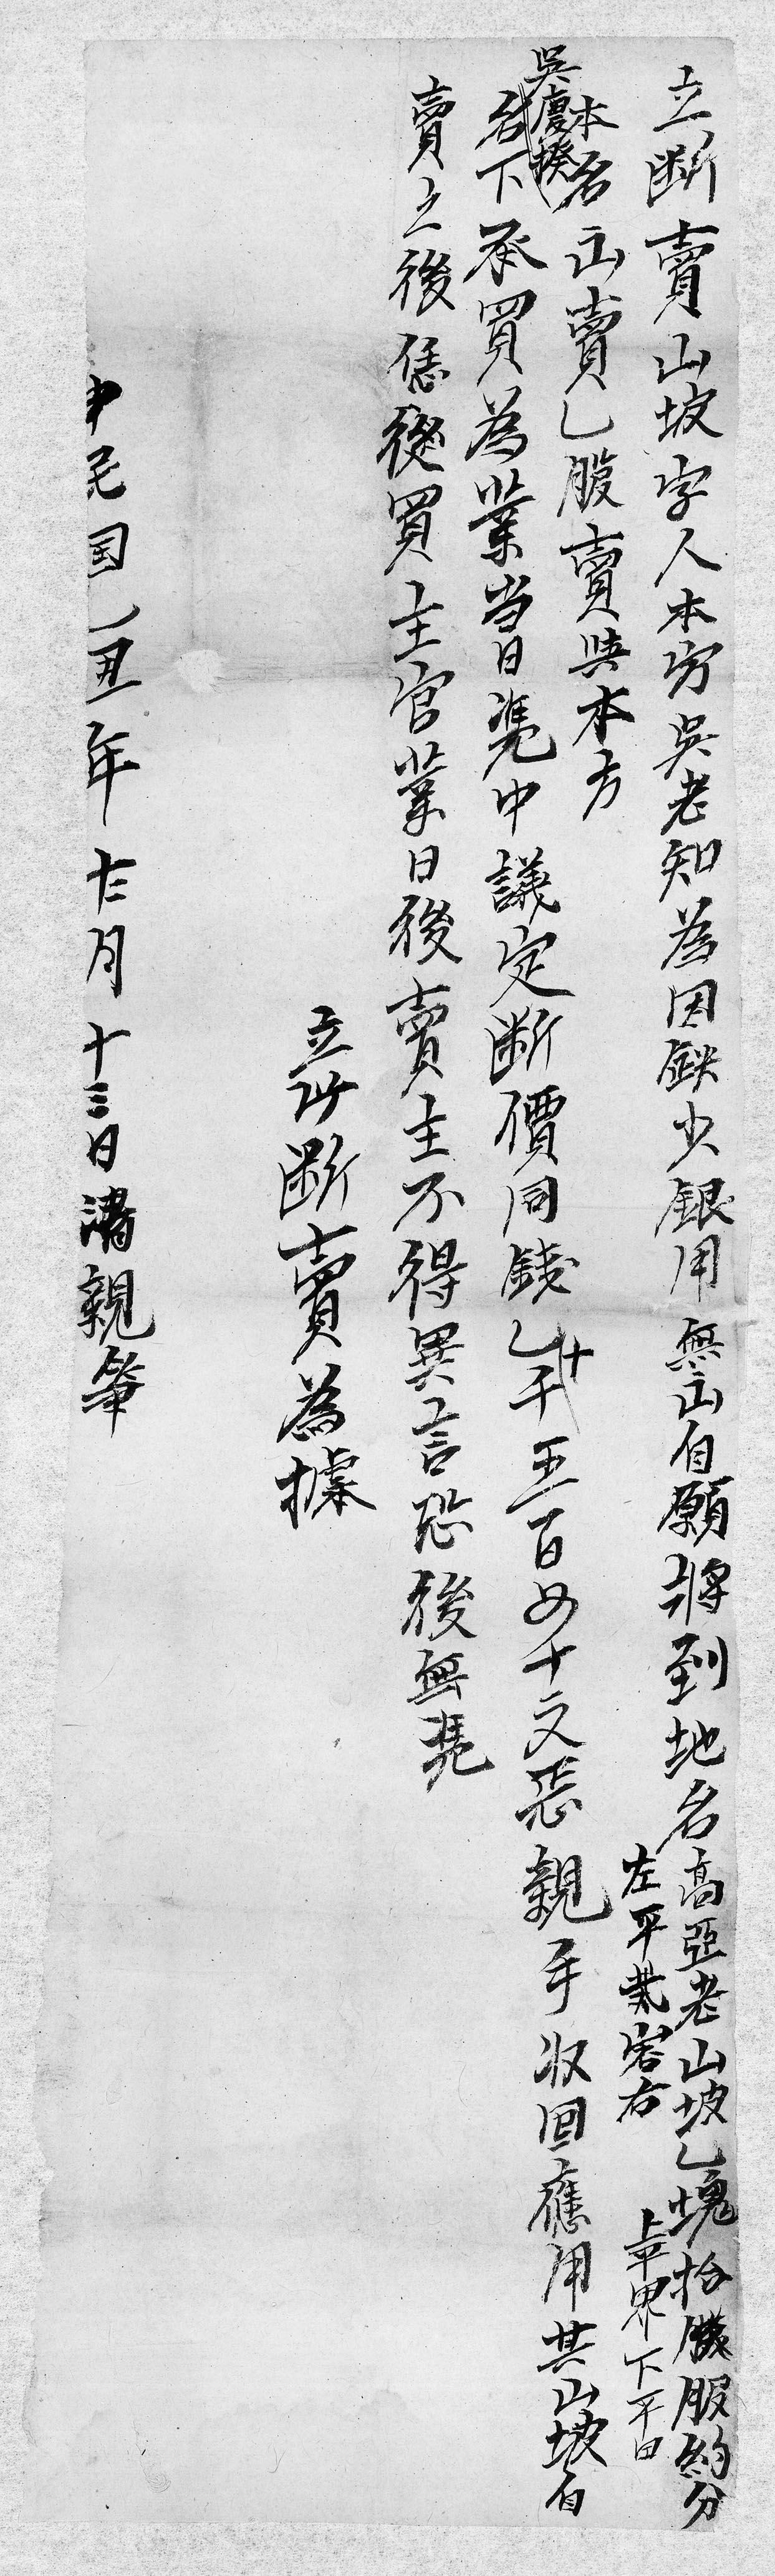 立断賣山坡字人本房吳老知為因缺少銀用無山自願將到地名高亞老山坡乚塊拾股服約分
左平
右
上平界下平田
本名山賣乚股賣與本方
吳慶
名下承買為業當日凴中議定断價同錢乚千十五百四十文恁親手收回應用其山坡自
賣之後恁從買主官業日後賣主不得異言恐後無凴
立此断賣為據
中民国乚丑年十二月十三日請親筆